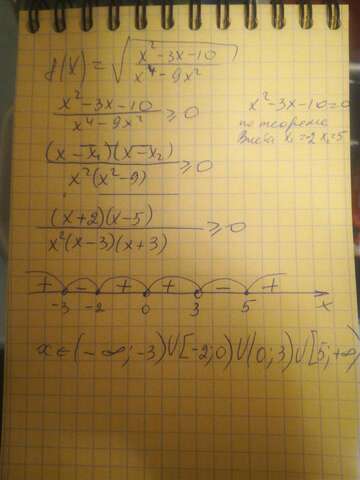 f(x) = √((x² - 3x - 10)/(x⁴ - 9x²))
(x² - 3x - 10)/(x⁴ - 9x²) ≥ 0
x² - 3x - 10 = 0
по теореме
Виета x₁ = -2 x₂ = 5
((x - x₁)(x - x₂))/(x²(x² - 9)) ≥ 0
((x + 2)(x - 5))/(x²(x - 3)(x + 3)) ≥ 0
+ - + + - +
-3 -2 0 3 5 x
x ∈ (-∞; -3) ∪ [-2; 0) ∪ (0; 3) ∪ [5; +∞)